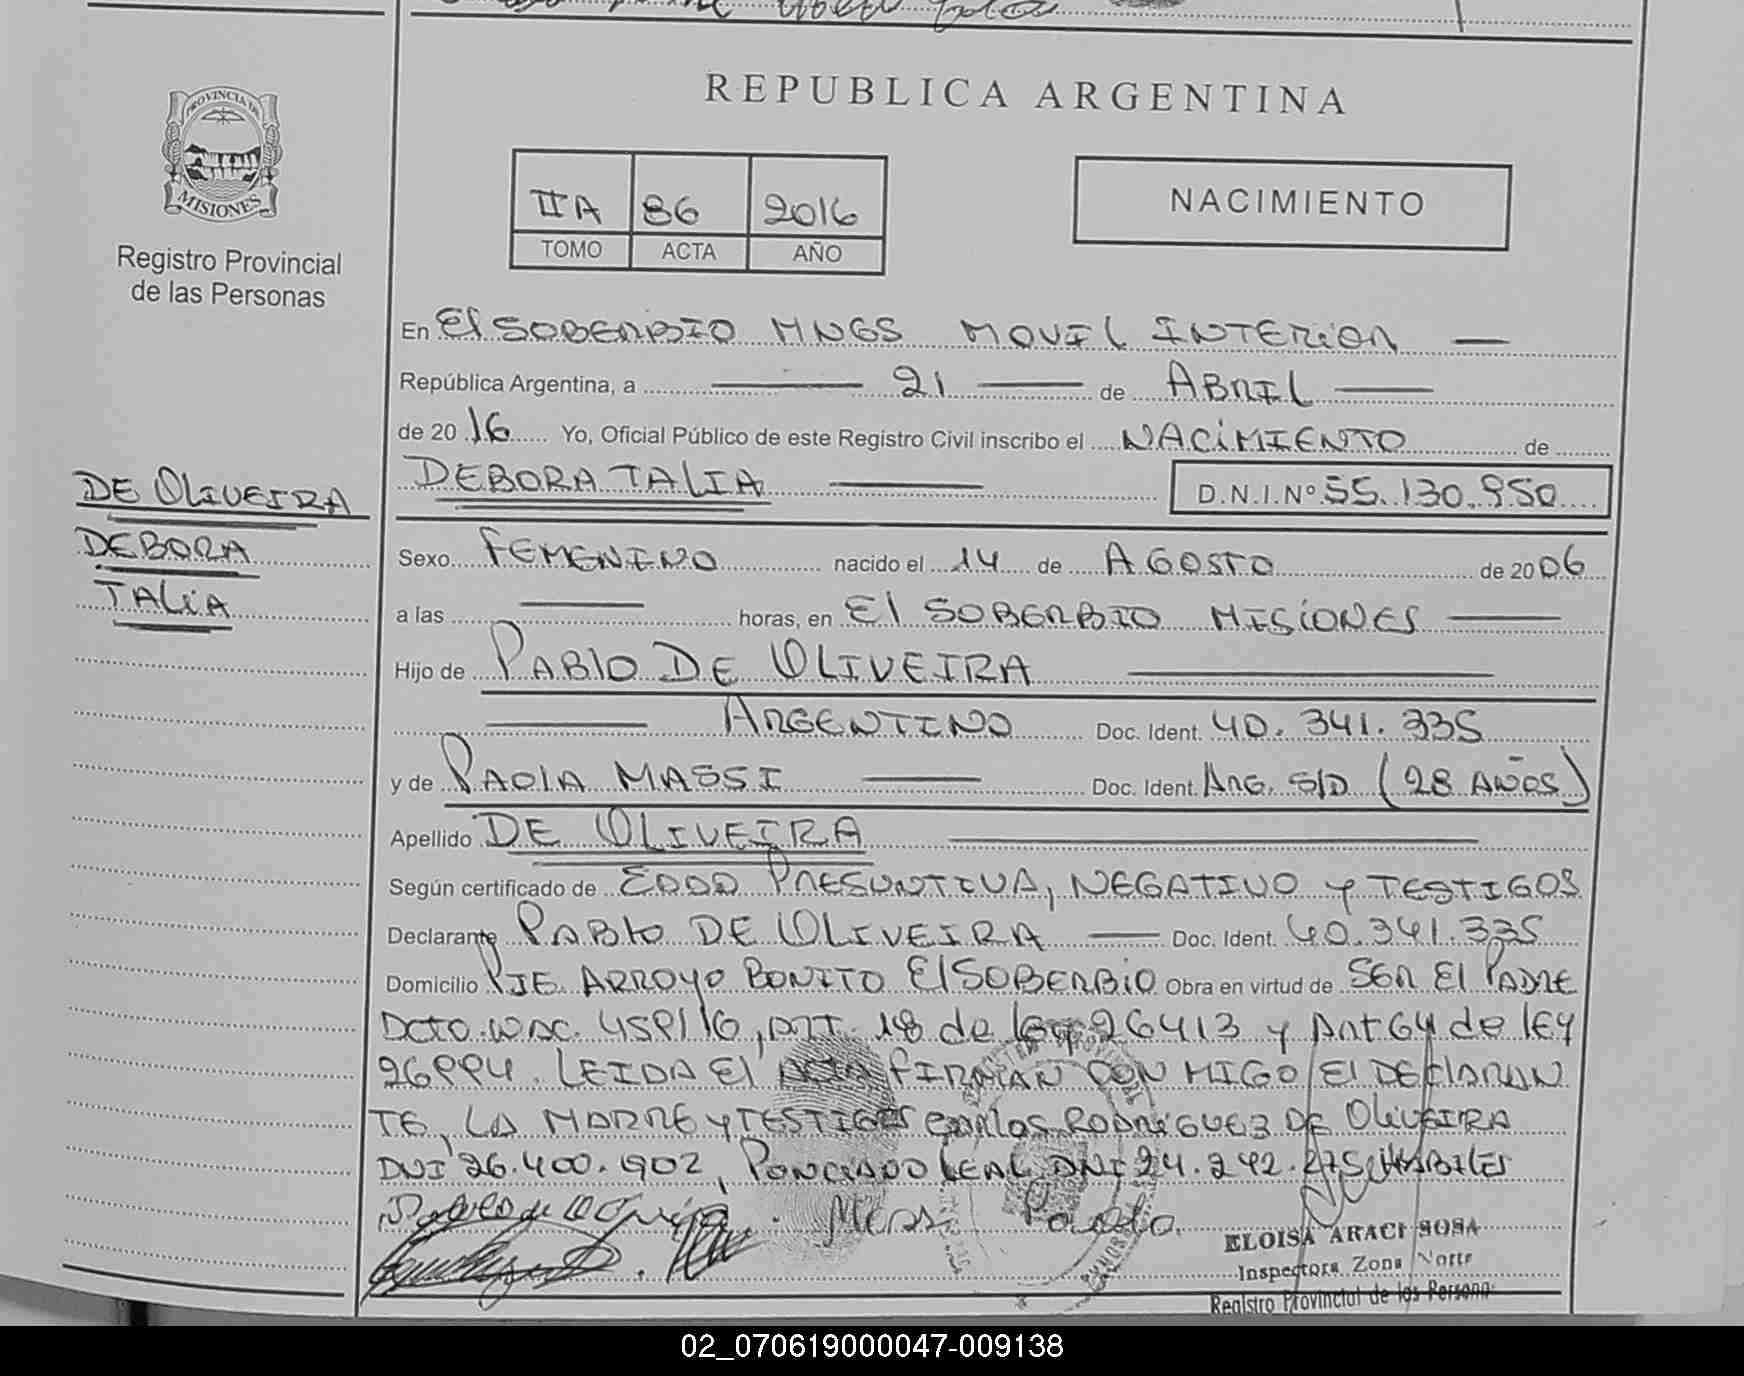 PROVINCIA DE
MISIONES
Registro Provincial
de las Personas
REPUBLICA ARGENTINA
IIA 86 2016
TOMO ACTA AÑO
NACIMIENTO
En El SOBERBIO MNES MOVIL INTERIOR
República Argentina, a 21 de ABRIL
de 20 16 Yo, Oficial Público de este Registro Civil inscribo el NACIMIENTO de
DEBORA TALIA D.N.I.Nº 55.130.950
DE OLIVEIRA
DEBORA
TALIA
Sexo FEMENINO nacido el 14 de AGOSTO de 20 06
a las horas, en El SOBERBIO MISIONES
Hijo de PABlO DE OLIVEIRA
ARGENTINO Doc. Ident. 40.341.335
y de PAOlA MASSI Doc. Ident. ARG. S/D (28 AÑOS)
Apellido DE OLIVEIRA
Según certificado de EDAD PRESUNTIVA, NEGATIVO y TESTIGOS
Declarante PABlO DE OLIVEIRA Doc. Ident. 40.341.335
Domicilio PJE ARROYO BONITO El SOBERBIO Obra en virtud de SER El PADRE
DCTO. 16, ART. 18 de lEy 26413 y ART 64 de lEY
26994. LEIDA El ACTA FIRMAN CON MIGO El DEClARAN
TE, LA MADRE y TESTIGOS CARlOS RODRIGUEZ DE OLIVEIRA
DNI 26.400.902, PONCIANO LEAL DNI 24.242. HABILES
Massi Paola
ELOISA ARACI SOSA
Inspectora Zona Norte
Registro Provincial de las Personas
02_070619000047-009138